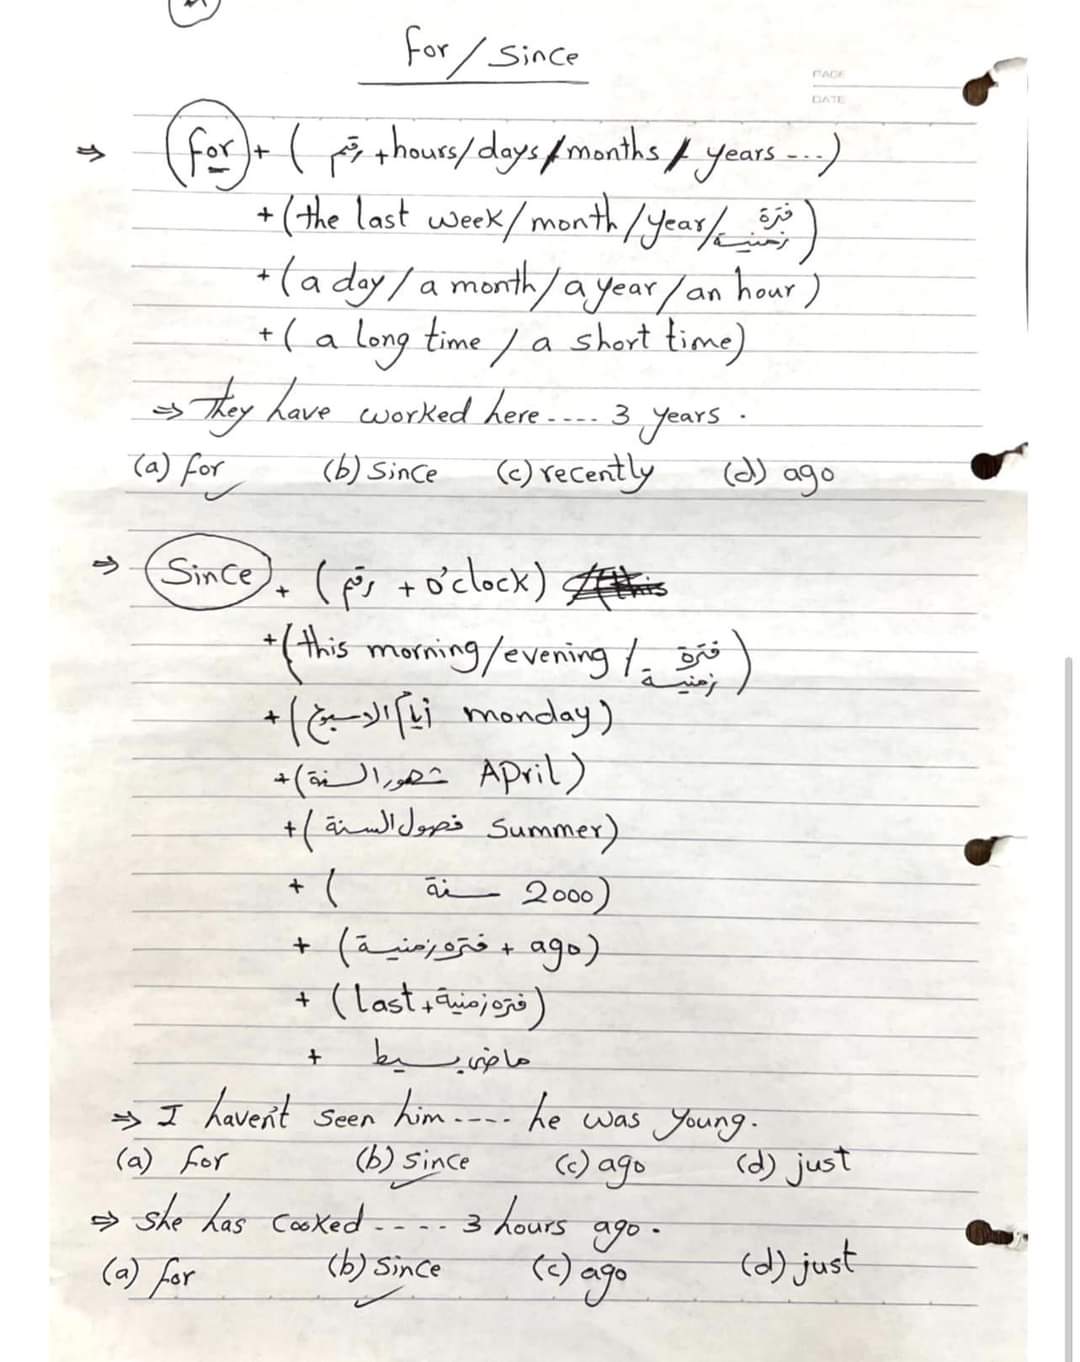 for / Since
PAGE
DATE
⇒ for + ( رقم + hours/days/months/years ---)
+ (the last week/month/year/ فترة زمنية)
+ (a day / a month / a year / an hour)
+ ( a long time / a short time)
⇒ They have worked here ---- 3 years .
(a) for (b) Since (c) recently (d) ago
⇒ Since + ( رقم + o'clock)
+ (this morning/evening / فترة زمنية)
+ (أيام الاسبوع monday)
+ (شهور السنة April)
+ (فصول السنة Summer)
+ ( سنة 2000)
+ (فتره زمنية + ago)
+ (Last + فتره زمنية)
+ ماضى بسيط
⇒ I haven't seen him ---- he was young.
(a) for (b) since (c) ago (d) just
⇒ she has cooked ---- 3 hours ago.
(a) for (b) since (c) ago (d) just